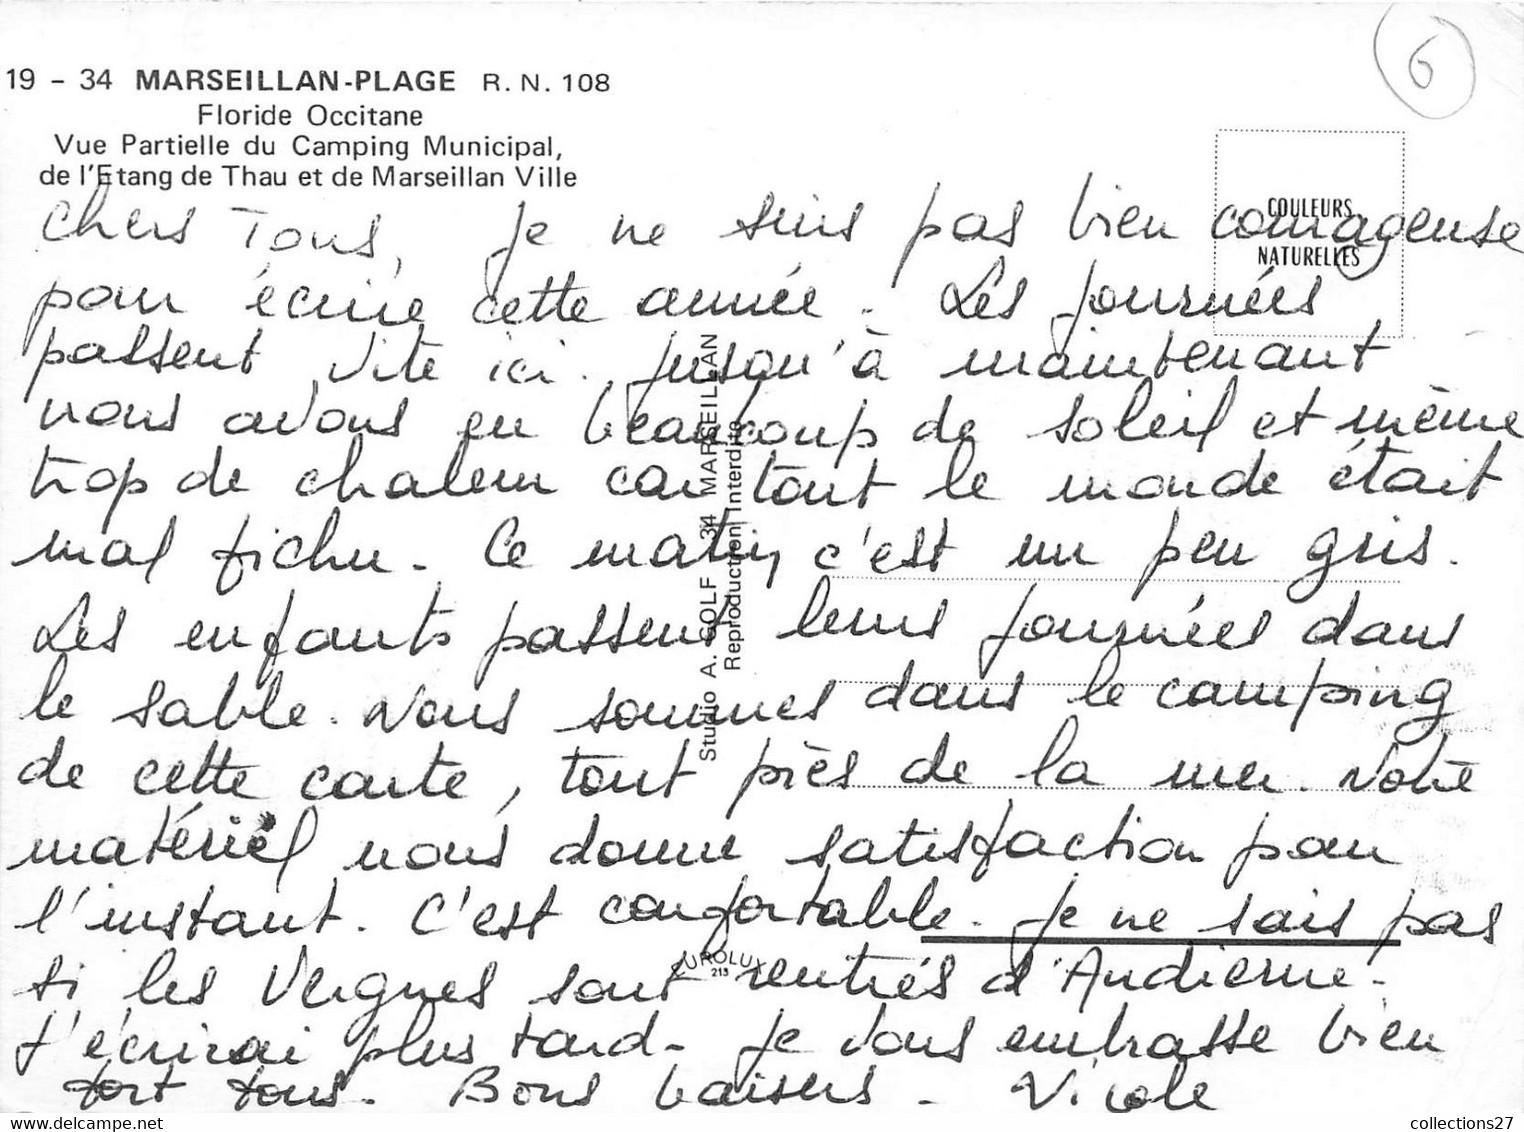 6
19 - 34 MARSEILLAN-PLAGE R. N. 108
Floride Occitane
Vue Partielle du Camping Municipal,
de l'Etang de Thau et de Marseillan Ville
COULEURS
NATURELLES
Chers Tous, Je ne suis pas bien courageuse
pour écrire cette année. Les journées
passent vite ici. Jusqu'à maintenant
nous avons eu beaucoup de soleil et même
trop de chaleur car tout le monde était
mal fichu. Ce matin, c'est un peu gris.
Les enfants passent leurs journées dans
le sable. Nous sommes dans le camping
de cette carte, tout près de la mer. Notre
matériel nous donne satisfaction pour
l'instant. C'est confortable. Je ne sais pas
si les Vergnes sont rentrés d'Audierne.
J'écrirai plus tard. Je vous embrasse bien
fort tous. Bons baisers. Nicole
Studio A. GOLF - 34 MARSEILLAN
Reproduction Interdite
EUROLUX
213
collections27